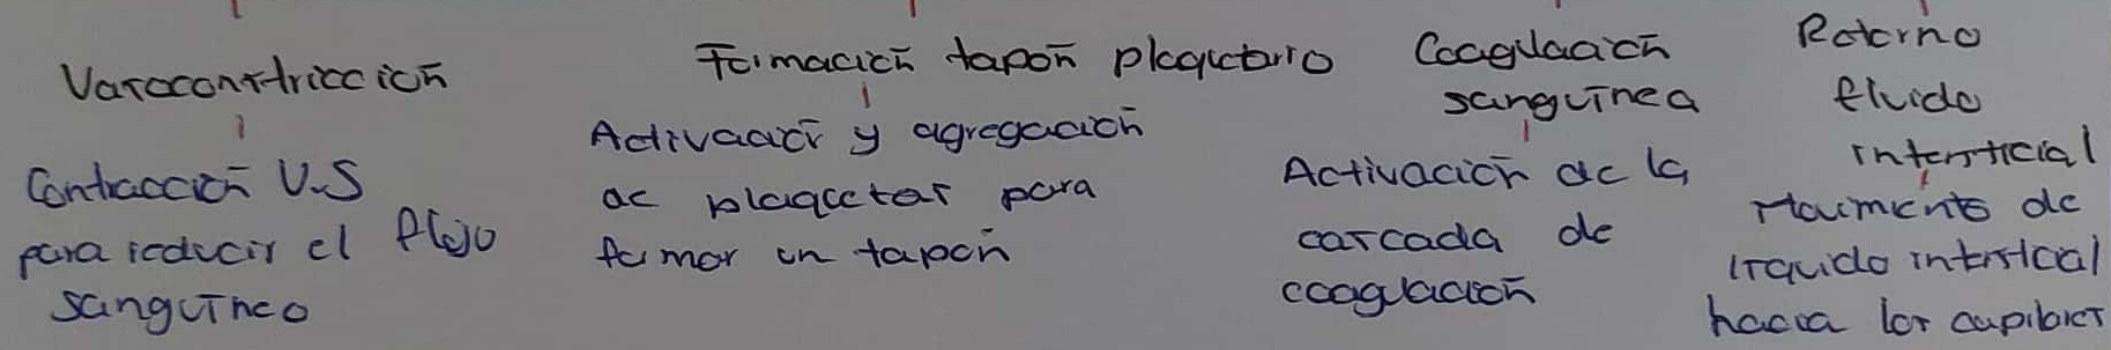 Vasoconstricción
Contracción V.S
para reducir el flujo
sanguíneo
Formación tapón plaquetario
Activación y agregación
de plaquetas para
formar un tapón
Coagulación
sanguínea
Activación de la
cascada de
coagulación
Retorno
fluido
intersticial
Movimiento de
líquido intersticial
hacia los capilares